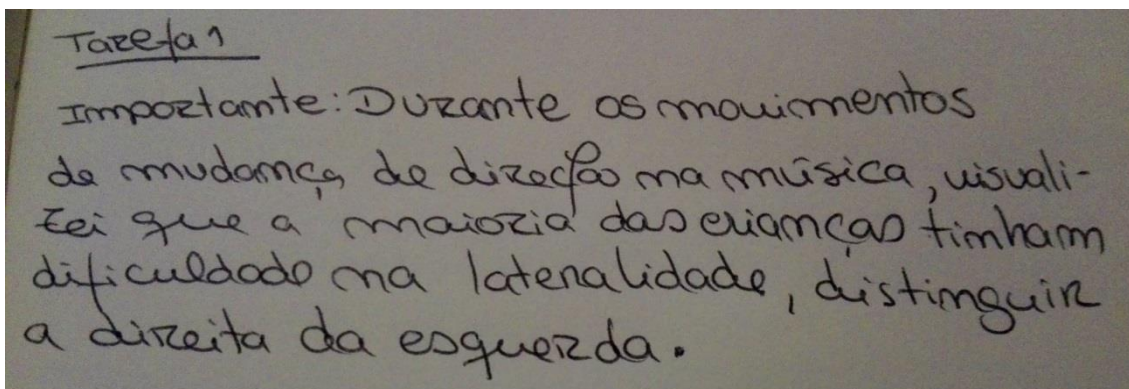 Tarefa 1
Importante: Durante os movimentos
de mudança de direção na música, visuali-
zei que a maioria das crianças tinham
dificuldade na lateralidade, distinguir
a direita da esquerda.